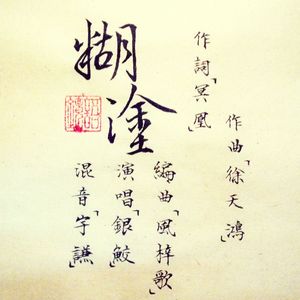 糊塗
作詞「冥凰」
作曲「徐天鴻」
編曲「風梓歌」
演唱「銀鮫」
混音「宇謙」